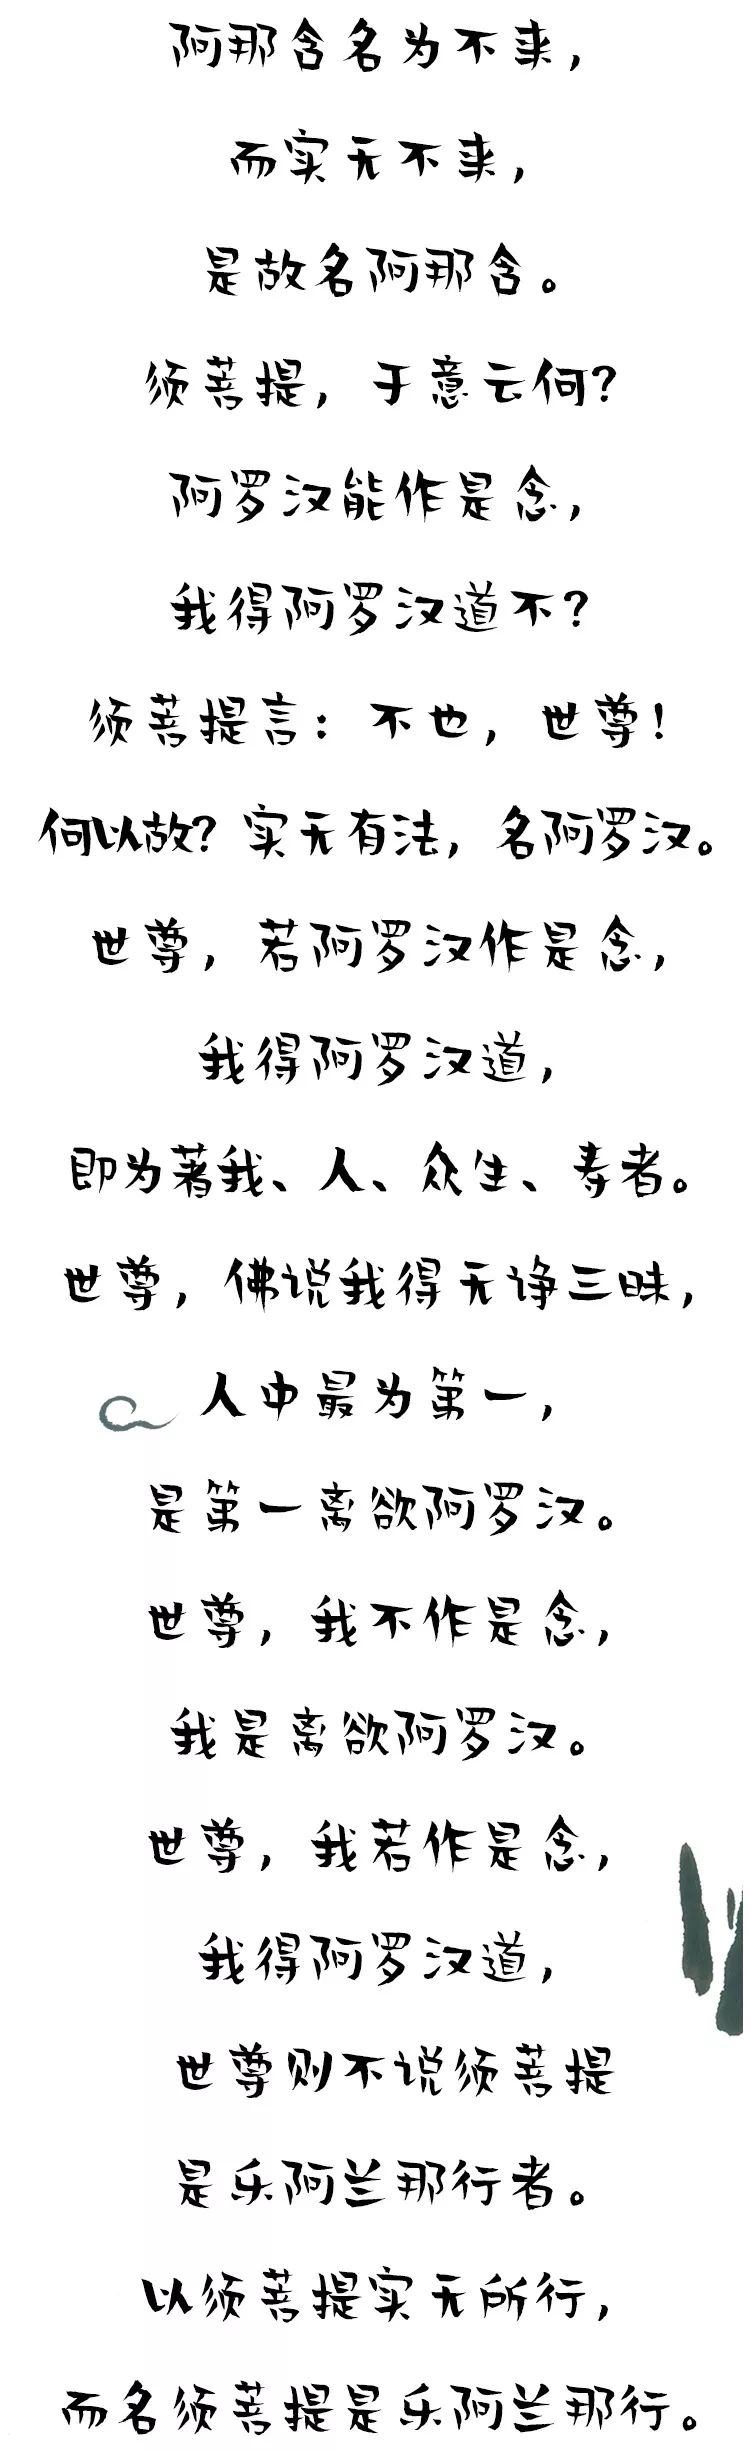 阿那含名为不来，
而实无不来，
是故名阿那含。
须菩提，于意云何？
阿罗汉能作是念，
我得阿罗汉道不？
须菩提言：不也，世尊！
何以故？实无有法，名阿罗汉。
世尊，若阿罗汉作是念，
我得阿罗汉道，
即为著我、人、众生、寿者。
世尊，佛说我得无诤三昧，
人中最为第一，
是第一离欲阿罗汉。
世尊，我不作是念，
我是离欲阿罗汉。
世尊，我若作是念，
我得阿罗汉道，
世尊则不说须菩提
是乐阿兰那行者。
以须菩提实无所行，
而名须菩提是乐阿兰那行。